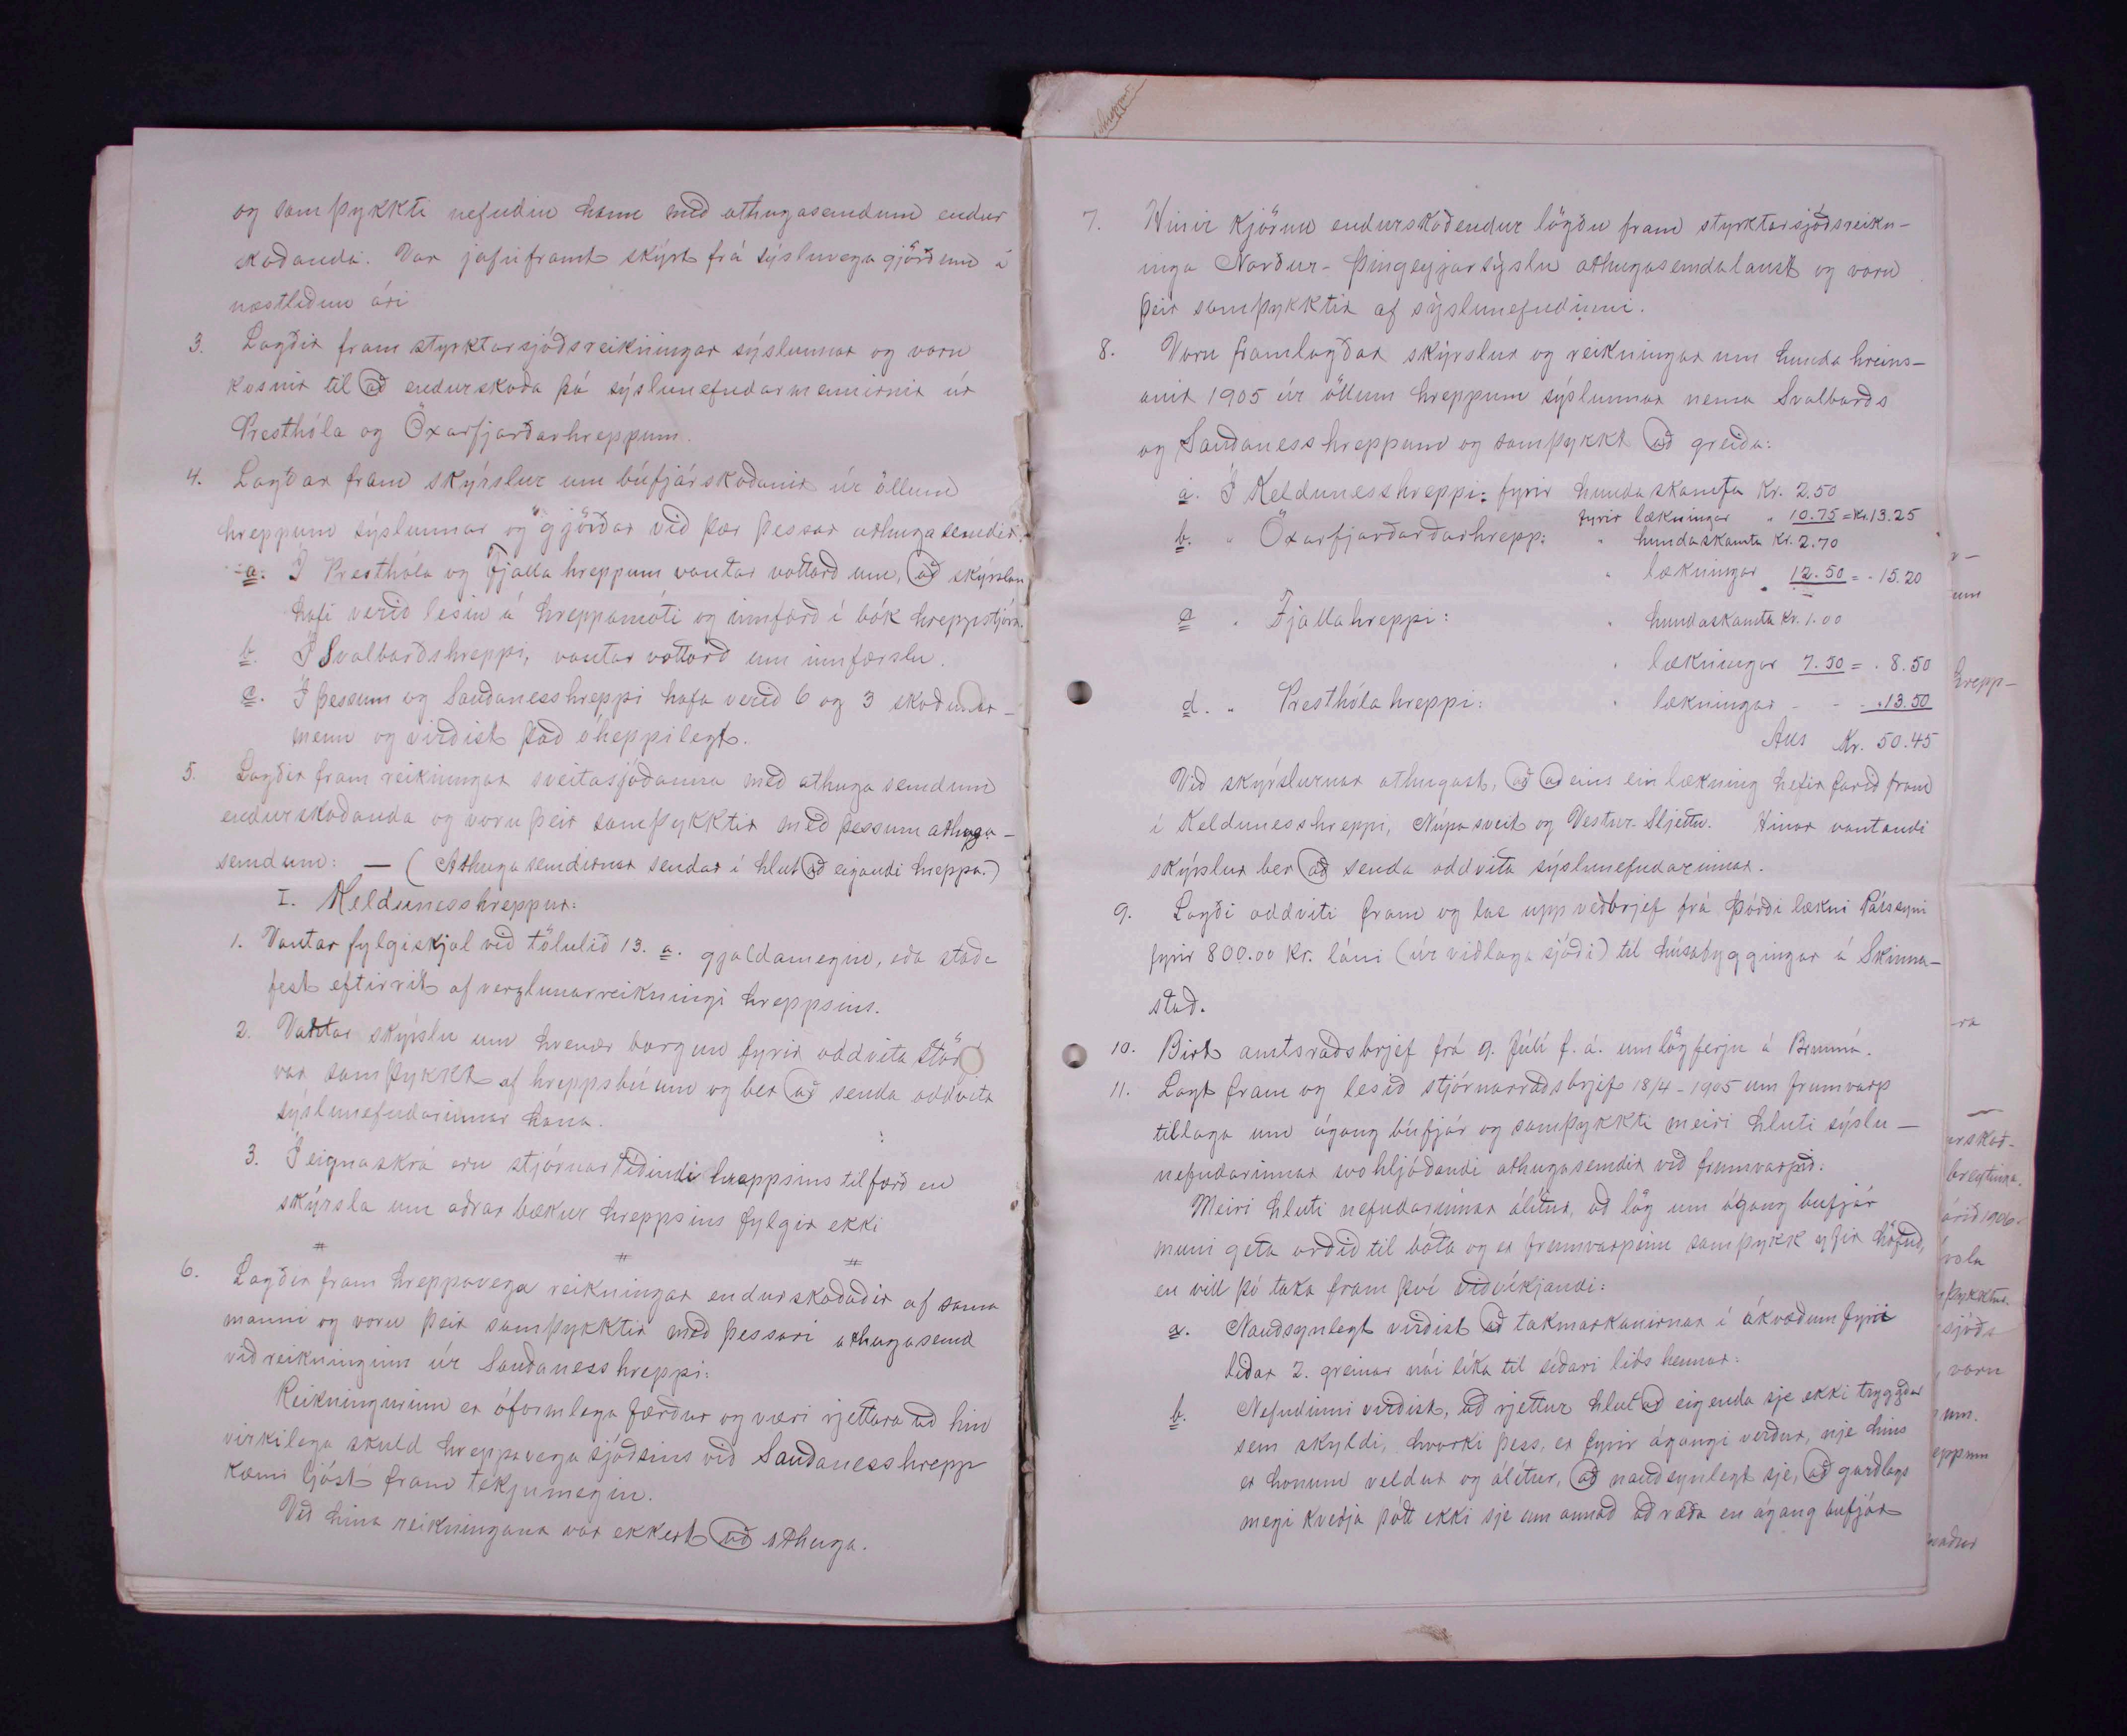 og samþykkti nefndin hann með athugasemdum endur
skoðanda. Var jafnframt skýrt frá sýsluvega gjörðum á
næstliðnu ári
3. Lagðir fram styrktarsjóðsreikningar sýslunnar og voru
kosnir til að endurskoða þá sýslunefndarmennirnir úr
Presthóla og Öxarfjarðarhreppum.
4. Lagðar fram skýrslur um búfjárskoðanir úr öllum
hreppum sýslunnar og gjörðar við þær þessar athugasemdir.
a. Í Presthóla og Fjalla hreppum vantar vottorð um, að skýrslan
hafi verið lesin á hreppamóti og innfærð í bók hreppstjóra.
b. Í Svalbarðshreppi, vantar vottorð um innfærslu.
c. Í þessum og Sauðanesshreppi hafa verið 6 og 3 skoðunar-
menn og virðist það óheppilegt.
5. Lagðir fram reikningar sveitasjóðanna með athugasemdum
endurskoðanda og voru þeir samþykktir með þessum athuga-
semdum: — (Athugasemdirnar sendar í hlut að eigandi hreppa.)
I. Keldunesshreppur:
1. Vantar fylgiskjal við tölulið 13. a. gjaldamegin, eða stað-
fest eftirrit af verzlunarreikningi hreppsins.
2. Vantar skýrslu um hvenær borgun fyrir oddvita störf
var samþykkt af hreppsbúum og ber að senda oddvita
sýslunefndarinnar hana.
3. Í eignaskrá eru stjórnartíðindi hreppsins tilfærð en
skýrsla um aðrar bækur hreppsins fylgir ekki
# # #
6. Lagðir fram hreppavega reikningar endurskoðaðir af sama
manni og voru þeir samþykktir með þessari athugasemd
við reikninginn úr Sauðanesshreppi:
Reikningurinn er óformlega færður og væri rjettara að hin
virkilega skuld hreppavega sjóðsins við Sauðanesshrepp
kæmi ljóst fram tekjumegin.
Við hina reikningana var ekkert að athuga.
hreppur
7. Hinir kjörnu endurskoðendur lögðu fram styrktarsjóðsreikn-
inga Norður-Þingeyjarsýslu athugasemdalaust og voru
þeir samþykktir af sýslunefndinni.
8. Voru framlagðar skýrslur og reikningar um hunda hreins-
anir 1905 úr öllum hreppum sýslunnar nema Svalbarðs
og Sauðanesshreppum og samþykkt að greiða:
a. Í Keldunesshreppi: fyrir hundaskamta Kr. 2.50
fyrir lækningar " 10.75 = Kr. 13.25
b. " Öxarfjarðarðarhrepp: " hundaskamta Kr. 2.70
" lækningar " 12.50 = - 15.20
c " Fjallahreppi: " hundaskamta Kr. 1.00
" lækningar 7.50 = . 8.50
d. " Presthólahreppi: " lækningar - - - . 13.50
Aus Kr. 50.45
Við skýrslurnar athugast, að aðeins ein lækning hefir farið fram
í Keldunesshreppi, Núpasveit og Vestur-Sljettu. Hinar vantandi
skýrslur ber að senda oddvita sýslunefndarinnar.
9. Lagði oddviti fram og las upp veðbrjef frá Þórði lækni Pálssyni
fyrir 800.00 kr. láni (úr viðlaga sjóði) til húsabyggingar á Skinna-
stað.
10. Birt amtsraðsbrjef frá 9. Júlí f. á. um lögferju á Brunná.
11. Lagt fram og lesið stjórnarráðsbrjef 18/4 - 1905 um frumvarp
tillaga um ágang búfjár og samþykkti meiri hluti sýslu-
nefndarinnar svohljóðandi athugasemdir við frumvarpið:
Meiri hluti nefndarinnar álítur, að lög um ágang búfjár
muni geta orðið til bóta og er frumvarpinu samþykk yfir höfuð,
en vill þó taka fram því viðvíkjandi:
a. Nauðsynlegt virðist að takmarkanirnar í ákvæðum fyrri
liðar 2. greinar nái líka til síðari liðs hennar:
b. Nefndinni virðist, að rjettur hlut að eigenda sje ekki tryggður
sem skyldi, hvorki þess, er fyrir ágangi verður, nje hins
er honum veldur og álítur, að nauðsynlegt sje, að garðlags
megi krefja þótt ekki sje um annað að ræða en ágang búfjár
um
hrepp-
ra
urskoð-
breytinga.
árið 1906.
þykktur.
sjóðs
, voru
um.
eppum
maður